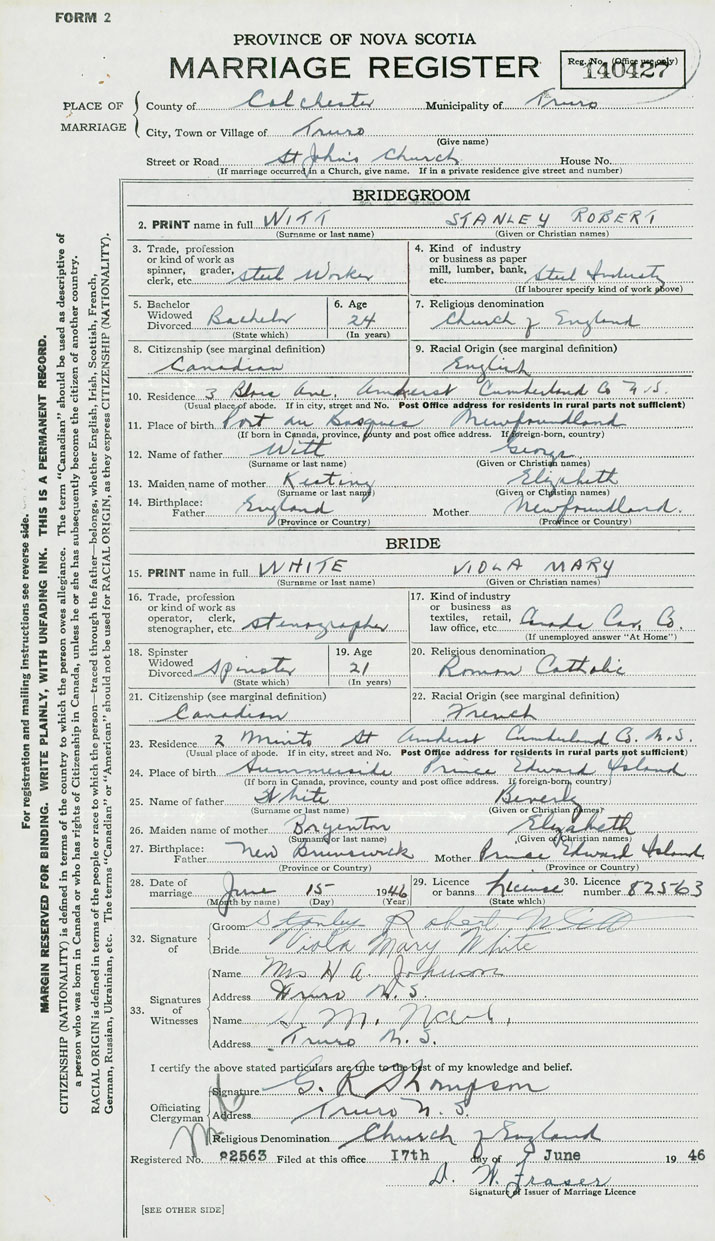 FORM 2
PROVINCE OF NOVA SCOTIA
MARRIAGE REGISTER
Reg. No. (Office use only)
140427
PLACE OF MARRIAGE
County of Colchester Municipality of Truro
City, Town or Village of Truro
(Give name)
Street or Road St John's Church House No.
(If marriage occurred in a Church, give name. If in a private residence give street and number)
BRIDEGROOM
2. PRINT name in full WITT STANLEY ROBERT
(Surname or last name) (Given or Christian names)
3. Trade, profession or kind of work as spinner, grader, clerk, etc. Steel Worker
4. Kind of industry or business as paper mill, lumber, bank, etc. Steel Industry
(If labourer specify kind of work above)
5. Bachelor Widowed Divorced Bachelor
(State which)
6. Age 24
(In years)
7. Religious denomination
Church of England
8. Citizenship (see marginal definition)
Canadian
9. Racial Origin (see marginal definition)
English
10. Residence 3 Ave. Amherst Cumberland Co N.S.
(Usual place of abode. If in city, street and No. Post Office address for residents in rural parts not sufficient)
11. Place of birth Port au Basques Newfoundland
(If born in Canada, province, county and post office address. If foreign-born, country)
12. Name of father Witt George
(Surname or last name) (Given or Christian names)
13. Maiden name of mother Keating Elizabeth
(Surname or last name) (Given or Christian names)
14. Birthplace: Father England Mother Newfoundland.
(Province or Country) (Province or Country)
BRIDE
15. PRINT name in full WHITE VIOLA MARY
(Surname or last name) (Given or Christian names)
16. Trade, profession or kind of work as operator, clerk, stenographer, etc. Stenographer
17. Kind of industry or business as textiles, retail, law office, etc. Canada Car, Co.
(If unemployed answer "At Home")
18. Spinster Widowed Divorced Spinster
(State which)
19. Age 21
(In years)
20. Religious denomination
Roman Catholic
21. Citizenship (see marginal definition)
Canadian
22. Racial Origin (see marginal definition)
French
23. Residence 2 Minto St Amherst Cumberland Co. N.S.
(Usual place of abode. If in city, street and No. Post Office address for residents in rural parts not sufficient)
24. Place of birth Summerside Prince Edward Island
(If born in Canada, province, county and post office address. If foreign-born, country)
25. Name of father White Beverly
(Surname or last name) (Given or Christian names)
26. Maiden name of mother Elizabeth
(Surname or last name) (Given or Christian names)
27. Birthplace: Father New Brunswick Mother Prince Edward Island
(Province or Country) (Province or Country)
28. Date of marriage June 15 1946
(Month by name) (Day) (Year)
29. Licence or banns License
(State which)
30. Licence number 82563
32. Signature of
Groom Stanley Robert Witt
Bride Viola Mary White
33. Signatures of Witnesses
Name Mrs H A. Johnson
Address Truro N.S.
Name S. M.
Address Truro N.S.
I certify the above stated particulars are true to the best of my knowledge and belief.
Officiating Clergyman
Signature G. R Thompson
Address Truro N.S.
Religious Denomination Church of England
Registered No. 82563 Filed at this office 17th day of June 19 46
D. W. Fraser
Signature of Issuer of Marriage Licence
[SEE OTHER SIDE]
For registration and mailing instructions see reverse side.
MARGIN RESERVED FOR BINDING. WRITE PLAINLY, WITH UNFADING INK. THIS IS A PERMANENT RECORD.
CITIZENSHIP (NATIONALITY) is defined in terms of the country to which the person owes allegiance. The term "Canadian" should be used as descriptive of
a person who was born in Canada or who has rights of Citizenship in Canada, unless he or she has subsequently become the citizen of another country.
RACIAL ORIGIN is defined in terms of the people or race to which the person—traced through the father—belongs, whether English, Irish, Scottish, French,
German, Russian, Ukrainian, etc. The terms "Canadian" or "American" should not be used for RACIAL ORIGIN, as they express CITIZENSHIP (NATIONALITY).